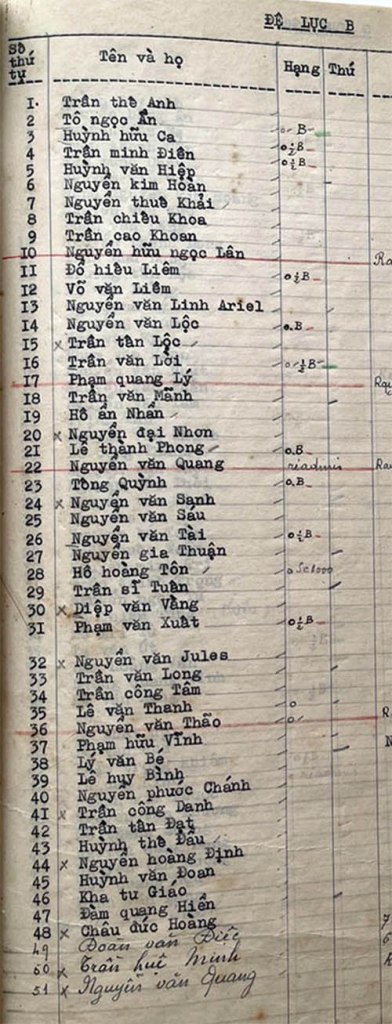 ĐỆ LỤC B
Số thứ tự Tên và họ Hạng Thú
I. Trần thế Anh
2 Tô ngọc Ẩn
3 Huỳnh hữu Ca o B
4 Trần minh Điền o ½ B
5 Huỳnh văn Hiệp o ½ B
6 Nguyễn kim Hoàn
7 Nguyễn thuế Khải
8 Trần chiêu Khoa
9 Trần cao Khoan
10 Nguyễn hữu ngọc Lân
II Đỗ hiếu Liêm o ½ B
I2 Võ văn Liêm
I3 Nguyễn văn Linh Ariel
I4 Nguyễn văn Lộc o.B
I5 x Trần tân Lộc
I6 Trần văn Lời o ½ B
I7 Phạm quang Lý
I8 Trần văn Mảnh
I9 Hồ ẩn Nhẫn
20 x Nguyễn đại Nhơn
2I Lê thành Phong o.B
22 Nguyễn văn Quang réadmis
23 Tống Quỳnh o.B
24 x Nguyễn văn Sanh
25 Nguyễn văn Sáu
26 Nguyễn văn Tài o ½ B
27 Nguyễn gia Thuận
28 Hồ hoàng Tôn o
29 Trần sĩ Tuân
30 x Diệp văn Vàng
3I Phạm văn Xuất o ½ B
32 x Nguyễn văn Jules
33 Trần văn Long
34 Trần công Tâm
35 Lê văn Thanh o
36 Nguyễn văn Thão o
37 Phạm hữu Vĩnh
38 Lý văn Bé
39 Lê huy Bình
40 Nguyễn phước Chánh
4I x Trần công Danh
42 Trần tân Đạt
43 Huỳnh thế Đầu
44 x Nguyễn hoàng Định
45 Huỳnh văn Đoan
46 Kha tư Giáo
47 Đàm quang Hiển
48 x Châu đức Hoàng
49 Đoàn văn Điếc
50 x Trần huê Minh
51 x Nguyễn văn Quang